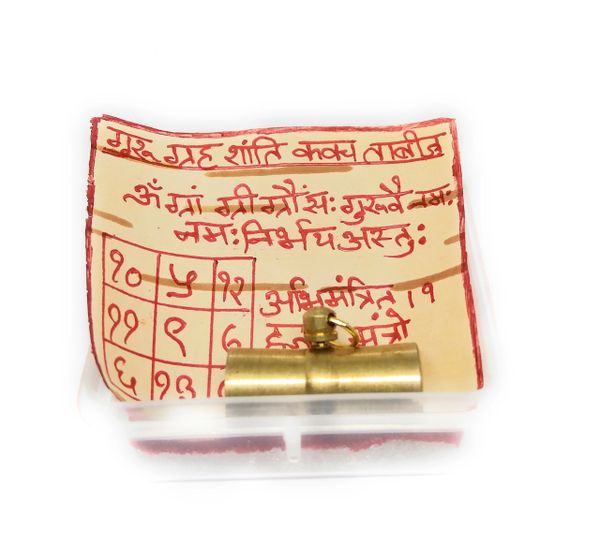 गुरू ग्रह शांति कवच ताबीज
ॐ ग्रां ग्रीं ग्रौं सः गुरूवै नमः
नमः निर्भय अस्तुः
१० ५ १२
अभिमंत्रित । १
११ ९ ७
मंत्रो
६ १३